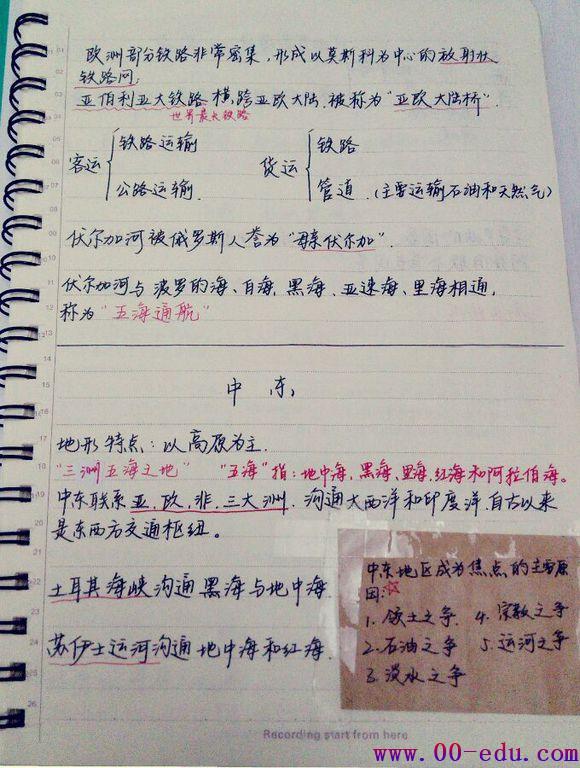 欧洲部分铁路非常密集,形成以莫斯科为中心的放射状
铁路网;
亚伯利亚大铁路 横跨亚欧大陆.被称为“亚欧大陆桥”.
世界最长铁路
客运 铁路运输 货运 铁路
公路运输 管道.(主要运输石油和天然气)
伏尔加河被俄罗斯人誉为“母亲伏尔加”.
伏尔加河与波罗的海、白海、黑海、亚速海、里海相通,
称为“五海通航”
中东
地形特点:以高原为主.
“三洲五海之地” “五海”指:地中海,黑海,里海,红海和阿拉伯海。
中东联系亚.欧.非.三大洲.沟通大西洋和印度洋.自古以来
是东西方交通枢纽。
土耳其海峡沟通黑海与地中海.
苏伊士运河沟通地中海和红海.
中东地区成为焦点的主要原
因:☆
1.领土之争. 4.宗教之争
2.石油之争 5.运河之争
3.淡水之争
Recording start from here
www.00-edu.com